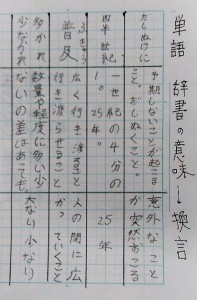 単語 辞書の意味→換言
だしぬけに
予期しないことが起こる
こと。だしぬくこと。
意外なこと
が突然おこる
四半世紀
一世紀の4分の
1。25年。
25年
ふきゅう
普及
広く行き渡ること
行き渡らせること
人の間に広
がっていくこと
多かれ
少なかれ
数量や程度に多い少
ないの差はあっても
大なり小なり